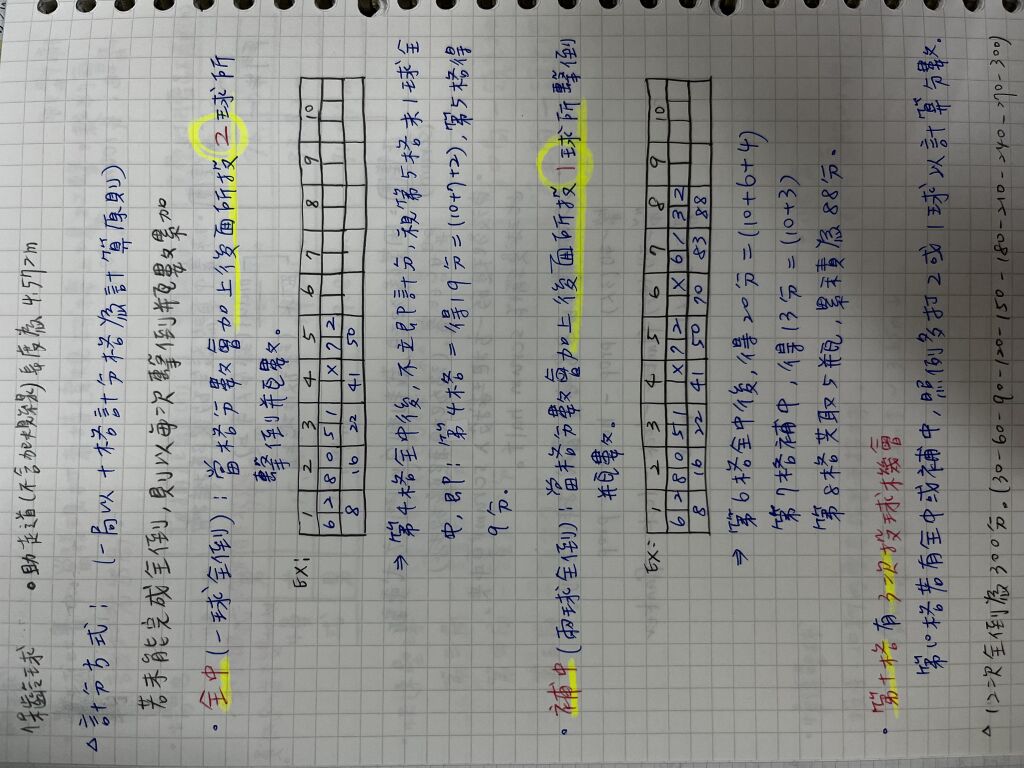 保齡球 •助走道(不含加速緩衝)長度應4.572m
△計分方式: (一局以十格計分格為計算原則)
若未能完成全倒,則以每一次擊倒井瓶數累加
•全中(一球全倒):當格分數會加上後面所投2球所
擊倒瓶數。
EX:
1 2 3 4 5 6 7 8 9 10
6 2 8 0 5 1 X 7 2
8 16 22 41 50
⇒ 第4格全中後,不立即計分,視第5格未1球全
中,即:第4格=得19分=(10+7+2),第5格得
9分。
•補中(兩球全倒):當格分數會加上後面所投1球所擊倒
瓶數。
EX:
1 2 3 4 5 6 7 8 9 10
6 2 8 0 5 1 X 7 2 X 6 / 3 2
8 16 22 41 50 70 83 88
⇒ 第6格全中後,得20分=(10+6+4)
第7格補中,得13分=(10+3)
第8格共取5瓶,累積為88分.
•第十格有3次投球機會
第10格若有全中或補中,照例多打2或1球以計算分數.
△ 12次全倒為300分.(30-60-90-120-150-180-210-240-270-300)